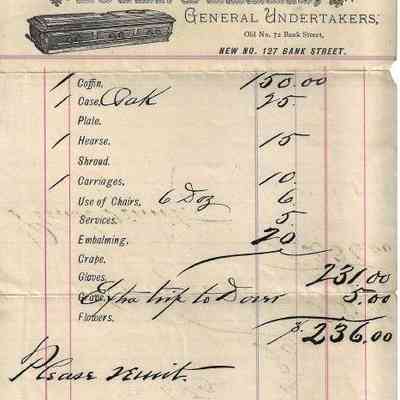 General Undertakers,
Old No. 72 Bank Street,
NEW NO. 127 BANK STREET.
1 Coffin, 150.00
1 Case, Oak 25
Plate.
1 Hearse, 15
Shroud.
1 Carriages, 10
Use of Chairs. 6 Doz 6
Services. 5
Embalming, 20
Crape.
Gloves. 231.00
Extra trip to 5.00
Flowers. $236.00
Please remit.